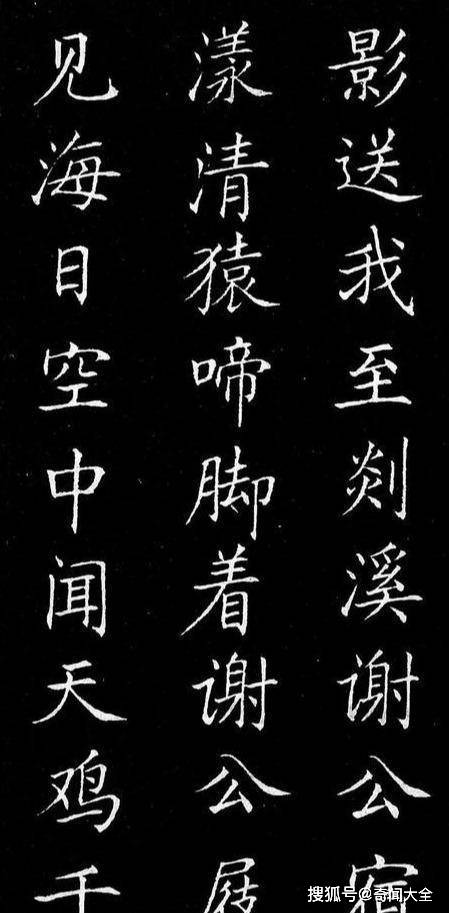 影送我至剡溪谢公宿
漾清猿啼脚着谢公屐
见海日空中闻天鸡千
搜狐号@奇闻大全